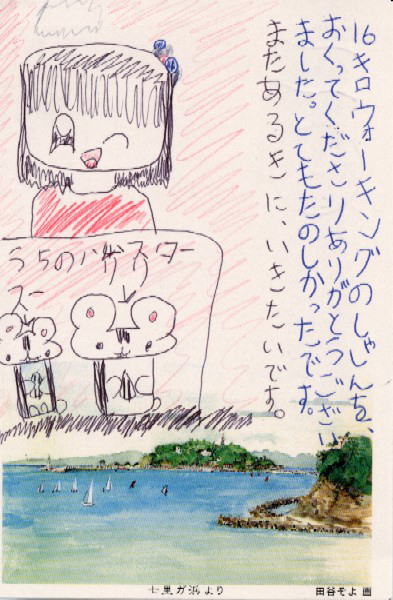 16キロウォーキングのしゃしんを、
おくってくださりありがとうござい
ました。とてもたのしかったです。
またあるきに、いきたいです。
うちのハムスター
スー
七里ガ浜より
田谷そよ 画